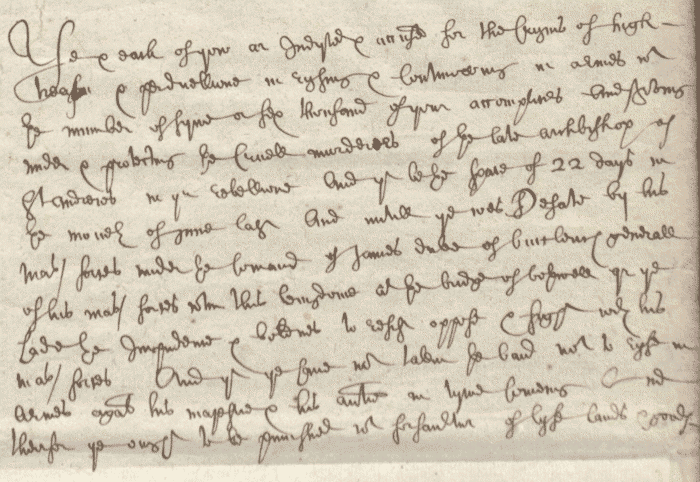 Ye & each of you ar Indyted & accused for the Crymes of high
treason & perduellione in ryseing & Continowing in armes wt
the number of fyve or sex thousand of your accomplices And
under & protecting the Cruell murderers of the late archbishop of
St andrews in yr rebellione And yt be the space of 22 days in
the moneth of June last And untill ye wer Defate by his
Maj/ forces under the Comand of James duke of buccleuch generall
of his maj/ forces wtin this kingdome at the bridge of bothwell qr ye
hade the Impudence & boldnes to resist oppose & fight with his
maj/ forces And yt ye have not taken the band not to ryse in
armes agat his majestie & his authtie in tyme comeing And
therfor ye ought to be punished wt forfaultur of lyfe lands & goods